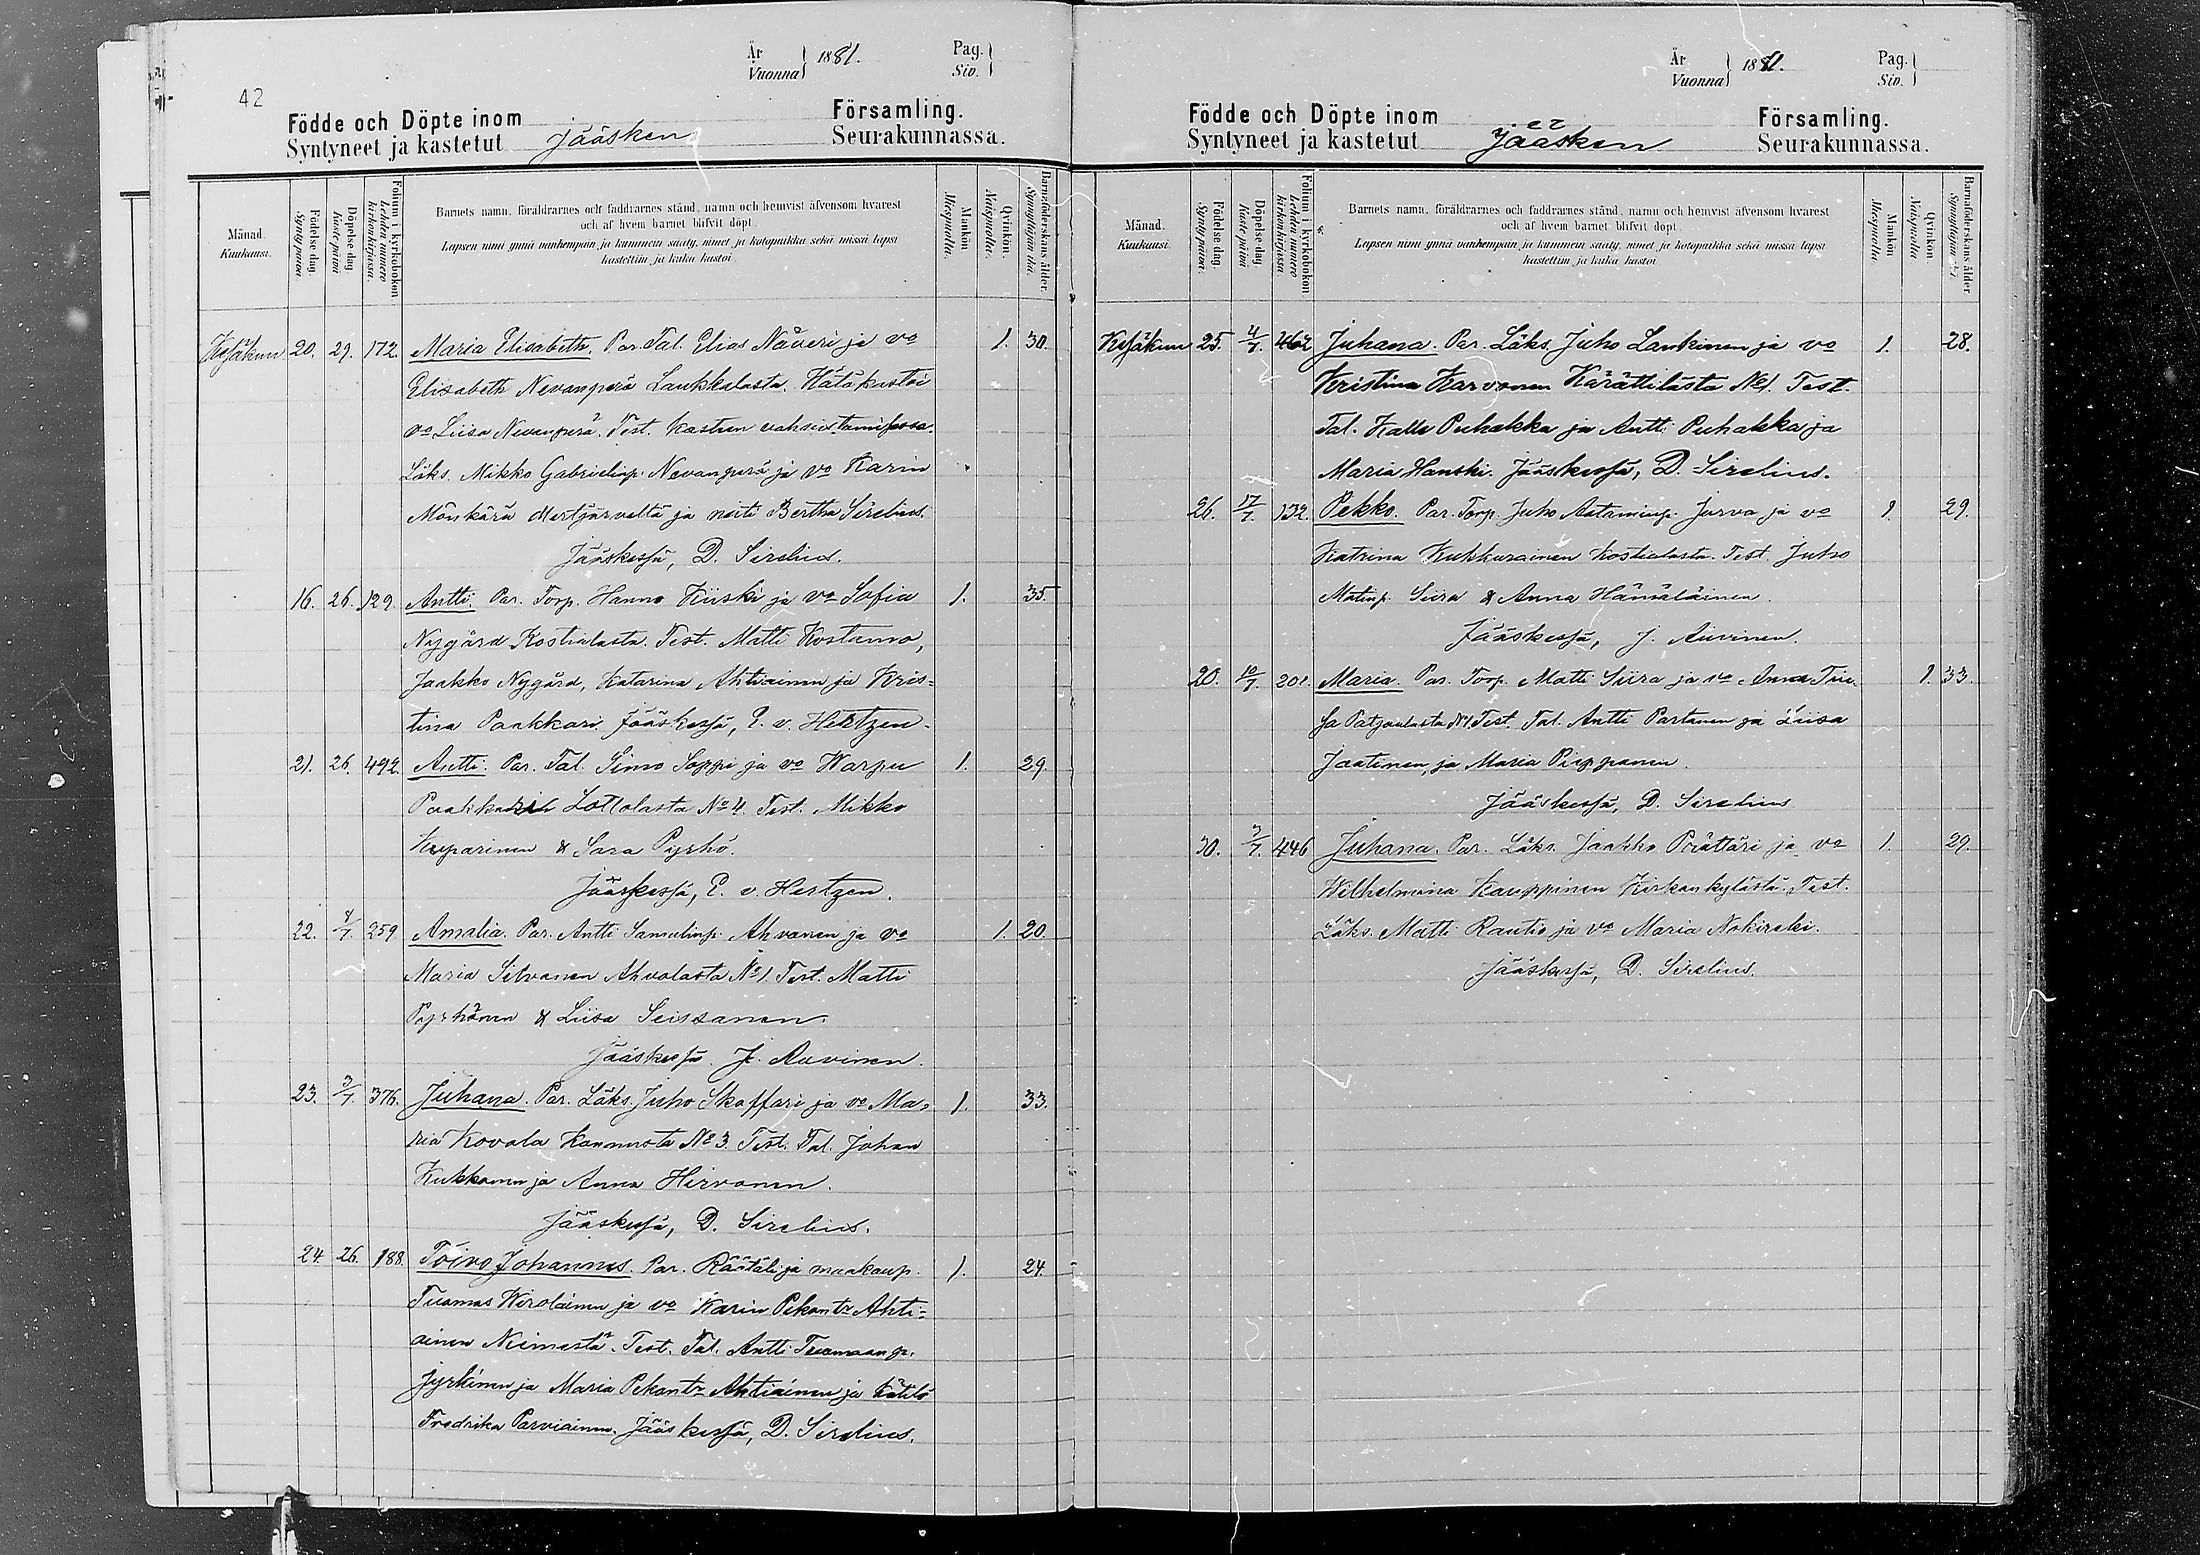 42
År
Vuonna 1881.
Pag.
Siv.
Födde och Döpte inom
Syntyneet ja kastetut Jääsken
Församling.
Seurakunnassa.
Månad.
Kuukausi.
Födelse dag.
Syntypäivä.
Döpelse dag.
Kaste päivä
Folium i kyrkoboken.
Lehden numero kirkonkirjassa.
Barnets namn, föräldrarnes och faddrarnes stånd, namn och hemvist äfvensom hvarest
och af hvem barnet blifvit döpt.
Lapsen nimi ynnä vanhempain ja kummein sääty, nimet ja kotopaikka sekä missä lapsi
kastettiin ja kuka kastoi.
Mankön.
Miespuolta.
Qvinkön.
Naispuolta.
Barnaföderskans ålder.
Synnyttäjän ikä.
Kesäkuu 20. 29. 172. Maria Elisabeth. Par. Tal. Elias Näveri ja vo 1. 30.
Elisabeth Nevanperä Laukkalasta. Hätäkastoi
vo Liisa Nevanperä. Test. kasteen vahvistamisessa.
Läks. Mikko Gabrielinp. Nevanperä ja vo Karin
Mönkärä Mertjärveltä ja neiti Bertha Sirelius.
Jääskessä, D. Sirelius.
16. 26. 129. Antti. Par. Torp. Hannu Kiiski ja vo Sofia 1. 35.
Nygård Kostialasta. Test. Matti Kostamo,
Jaakko Nygård, Katarina Ahtiainen ja Kris=
tina Paakkari. Jääskessä, E. v. Hertzen.
21. 26. 492. Antti. Par. Tal. Simo Soppi ja vo Warpu 1. 29.
Lottolasta No 4. Test. Mikko
Kuparinen & Sara Pyrhö.
Jääskessä, E. v. Hertzen.
22. 8/7. 259. Amalia. Par. Antti Samulinp. Ahvanen ja vo 1. 20.
Maria Silvanen Ahvolasta No 1. Test. Matti
Pyrhönen & Liisa Seissanen.
Jääskessä. J. Auvinen.
23. 3/7. 376. Juhana. Par. Läks. Juho Skaffari ja vo Ma= 1. 33.
ria Kovala Kannusta No 3. Test. Tal. Johan
Kukkonen ja Anna Hirvonen.
Jääskessä, D. Sirelius.
24. 26. 188. Toivo Johannes. Par. Räätäli ja maakaup. 1. 24.
Tuomas Wirolainen ja vo Karin Pekantr Ahti=
ainen Niemestä. Test. Tal. Antti Tuomaanp.
Jyrkinen ja Maria Pekantr Ahtiainen ja kätilö
Fredrika Parviainen. Jääskessä, D. Sirelius.
År
Vuonna 1881.
Pag.
Siv.
Födde och Döpte inom
Syntyneet ja kastetut Jääsken
Församling.
Seurakunnassa.
Månad.
Kuukausi.
Födelse dag.
Syntypäivä.
Döpelse dag.
Kaste päivä
Folium i kyrkoboken
Lehden numero kirkonkirjassa.
Barnets namn, föräldrarnes och faddrarnes stånd, namn och hemvist äfvensom hvarest
och af hvem barnet blifvit döpt.
Lapsen nimi ynnä vanhempain ja kummein sääty, nimet ja kotopaikka sekä missä lapsi
kastettiin ja kuka kastoi.
Mankön
Miespuolta
Qvinkön.
Naispuolta
Barnaföderskans ålder
Synnyttäjän ikä.
Kesäkuu 25. 4/7. 462 Juhana. Par. Läks. Juho Lankinen ja vo 1. 28.
Kristina Karvonen Kärättilästä No 1. Test.
Tal. Kalle Puhakka ja Antti Puhakka ja
Maria Hanski. Jääskessä, D. Sirelius.
26. 17/7. 132. Pekko. Par. Torp. Juho Aataminp. Jurva ja vo 1. 29.
Katrina Kukkurainen Kostialasta. Test. Juho
Matinp. Siira & Anna Hämäläinen.
Jääskessä, J. Auvinen.
20. 10/7. 201. Maria. Par. Torp. Matti Siira ja vo Anna 1. 33.
Patjaalasta No 1 Test. Tal. Antti Partanen ja Liisa
Jaatinen, ja Maria Piipponen.
Jääskessä, D. Sirelius
30. 3/7. 446 Juhana. Par. Läks. Jaakko Prättäri ja vo 1. 29.
Wilhelmina Kauppinen Kirkonkylästä. Test.
Läks. Matti Rautio ja vo Maria Nokireki.
Jääskessä, D. Sirelius.